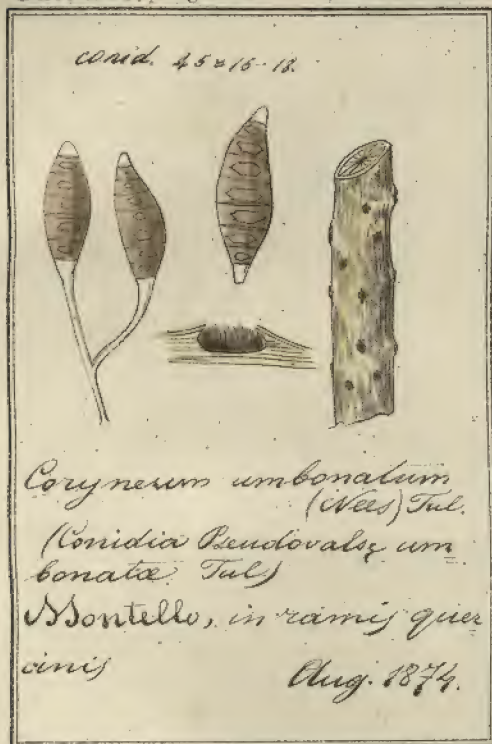 conid. 45 = 16-18.
Coryneum umbonatum
(Nees) Tul.
(Conidia Pseudovalsę um
bonatæ Tul)
Montello, in ramis quer
cinis
Aug. 1874.